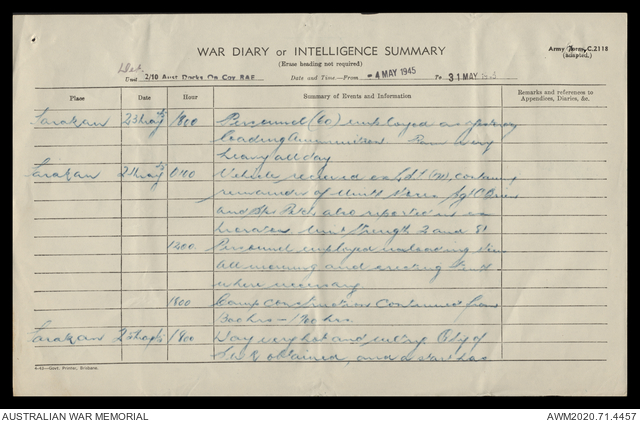 WAR DIARY or INTELLIGENCE SUMMARY
(Erase heading not required)
Army Form, C.2118
(adapted.)
Det
Unit 2/10 Aust Docks Op Coy RAE Date and Time—From -4 MAY 1945 To 31 MAY
Place Date Hour Summary of Events and Information Remarks and references to Appendices, Diaries, &c.
Tarakan 23 May 45 1800 Personnel (60) employed
loading Ammunition Rain very
heavy all day.
Tarakan 24 May 45 Vehicle received ex LST containing
remainder of Unit Stores Sgt O'Brien
and also reported in
Unit Strength 2 and 81
1200 Personnel employed unloading
all morning and erecting tents
where necessary
1800 Camp construction continued from
1300 hrs – hrs.
Tarakan 25 May 45 1800 Day very hot and sultry. Qty of
obtained, and a start has
A-63—Govt. Printer, Brisbane.
AUSTRALIAN WAR MEMORIAL AWM2020.71.4457